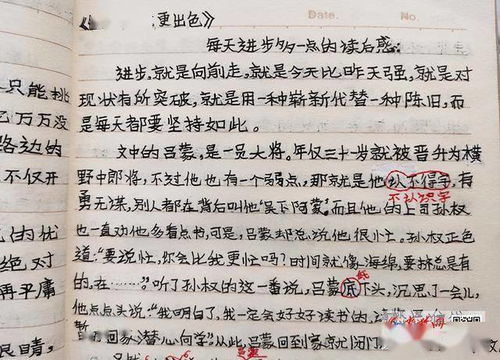 更出色》
Date.
No.
每天进步多一点的读后感:
进步,就是向前走,就是今天比昨天强,就是对
现状有所突破,就是用一种崭新代替一种陈旧,而
是每天都要坚持如此。
只能挑
文中的吕蒙,是一员大将。年仅三十岁就被晋升为横
万万没
野中郎将,不过他也有一个弱点,那就是他认不得字,有
不认识字
路边的
勇无谋,别人都在背后叫他“吴下阿蒙”。而且他的上司孙权
不仅开
也一直劝他多看点书,可是,吕蒙却总说他很忙。孙权正色
道:“要说忙,你会比我更忙吗?时间就像海绵,要挤总是有
的忧
的,在……。”听了孙权的这一番说,吕蒙底下头,沉思了一会儿,
低
绝对
他点点头说:“我明白了,我一定会好好读书的,
再平庸
回家潜心向学”从此,吕蒙回到家就闭门
很晴,